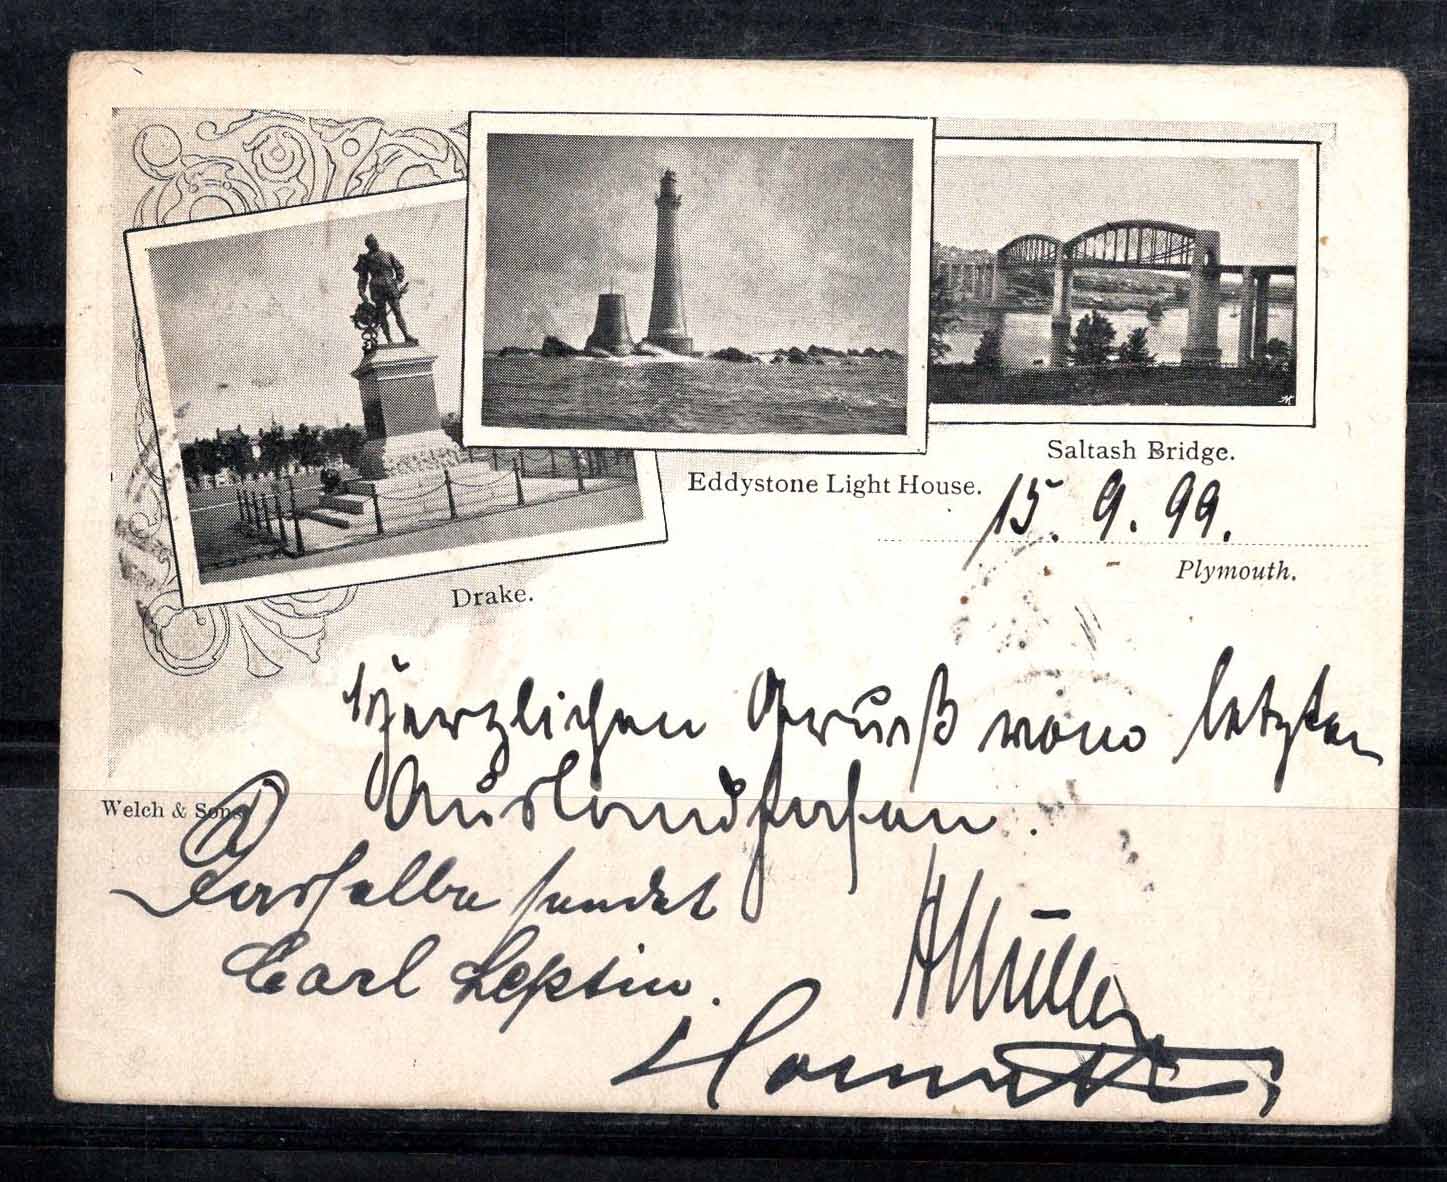 Saltash Bridge.
Eddystone Light House.
15. 9. 99.
Plymouth.
Drake.
Herzlichen Gruß vom letzten
Auslandhafen.
Welch & Sons
Dasselbe sendet
Carl Leptin.
H Müller